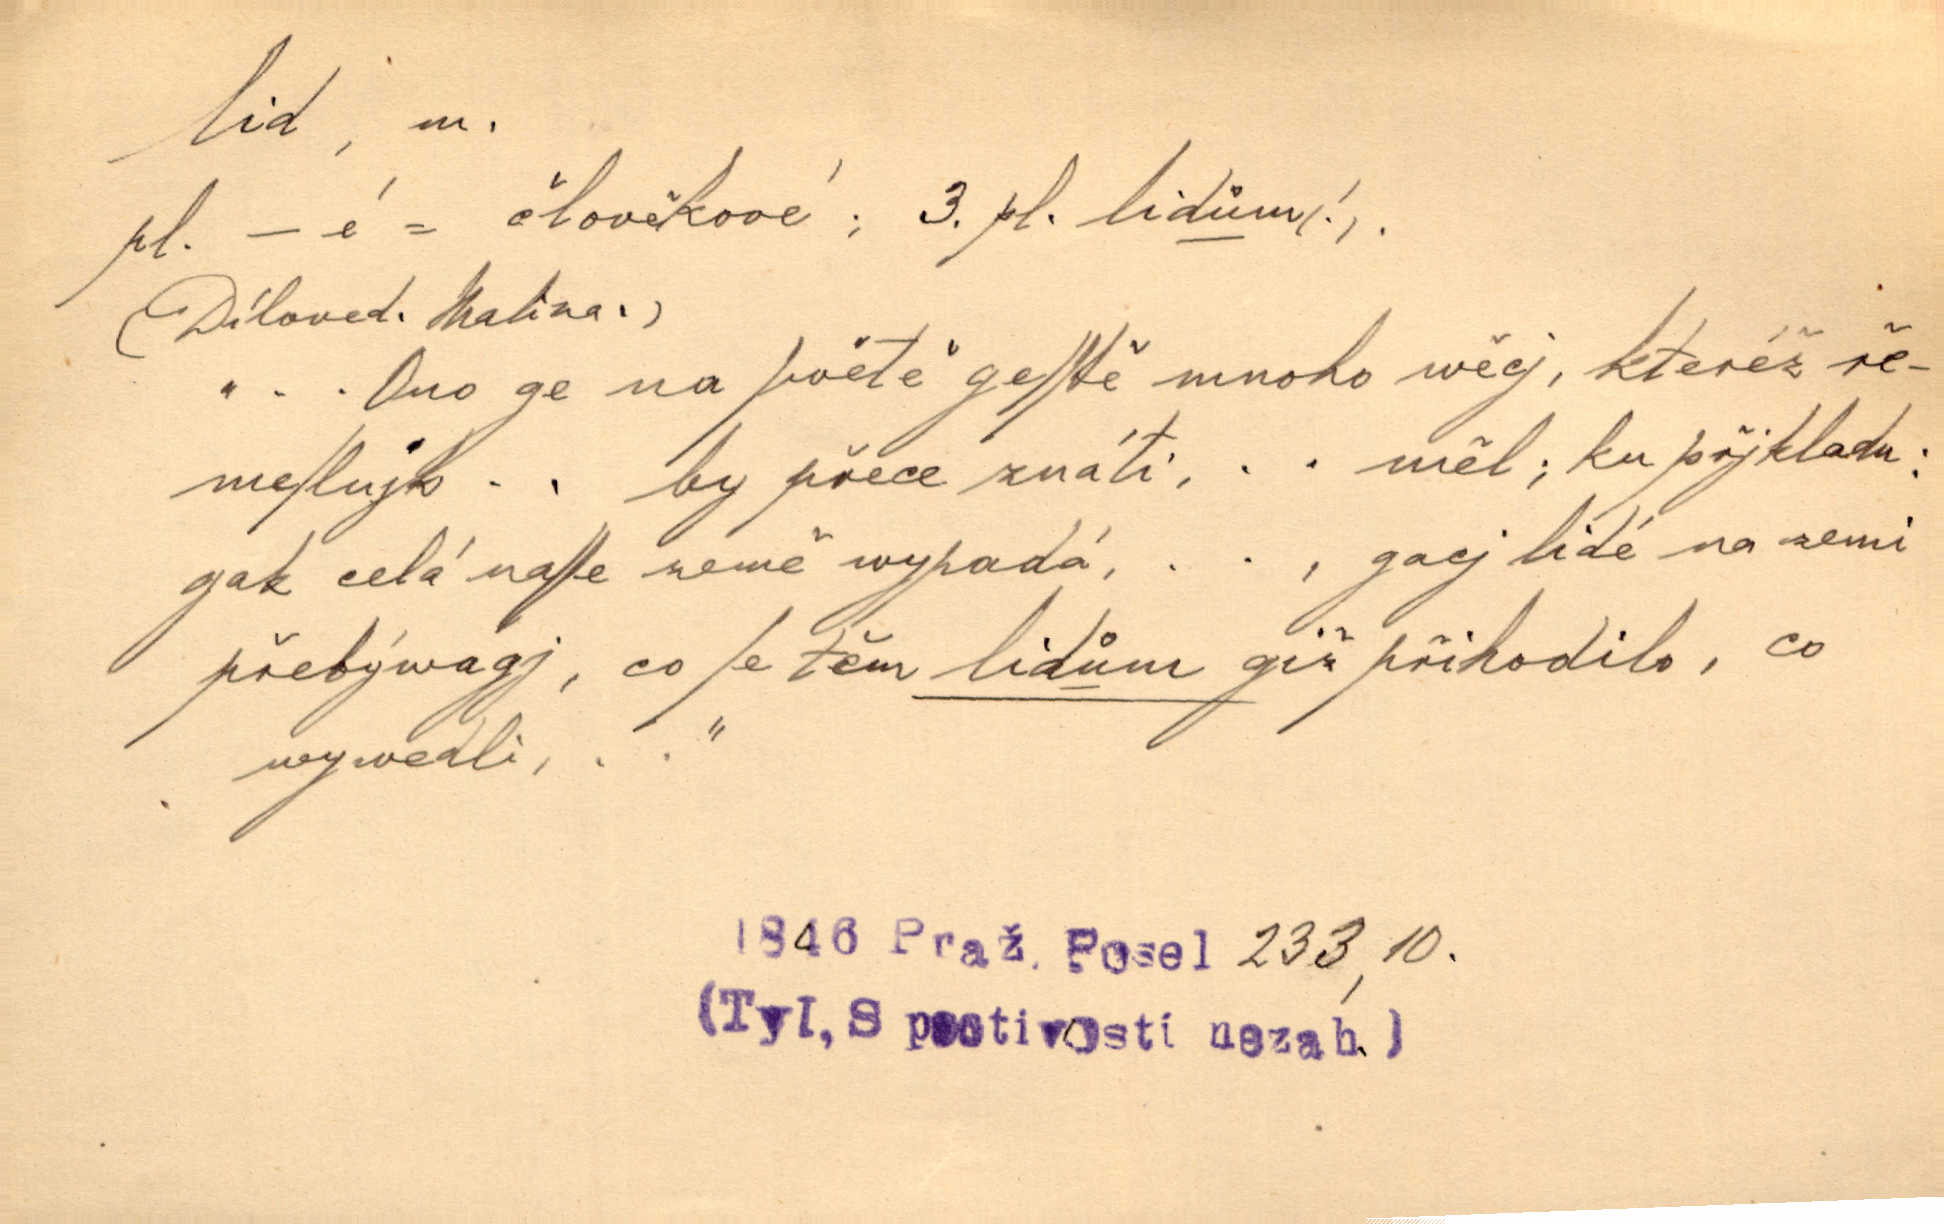 lid, m.
pl. – é = člověkové; 3. pl. lidům(!).
(Díloved. Malina.)
". . . Ono ge na ſvětě geſſtě mnoho wěcj, kteréž ře-
meſlnjk . . by přece znáti, . . měl; ku přjkladu:
gak celá naſſe země wypadá, . . , gacj lidé na zemi
přebýwagj, co ſe těm lidům giž přihodilo, co
wywedli, . . "
1846 Praž. Posel 233, 10.
(Tyl, S poctivostí nezah.)